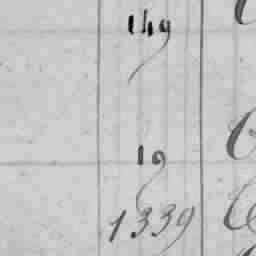 149
19
1339